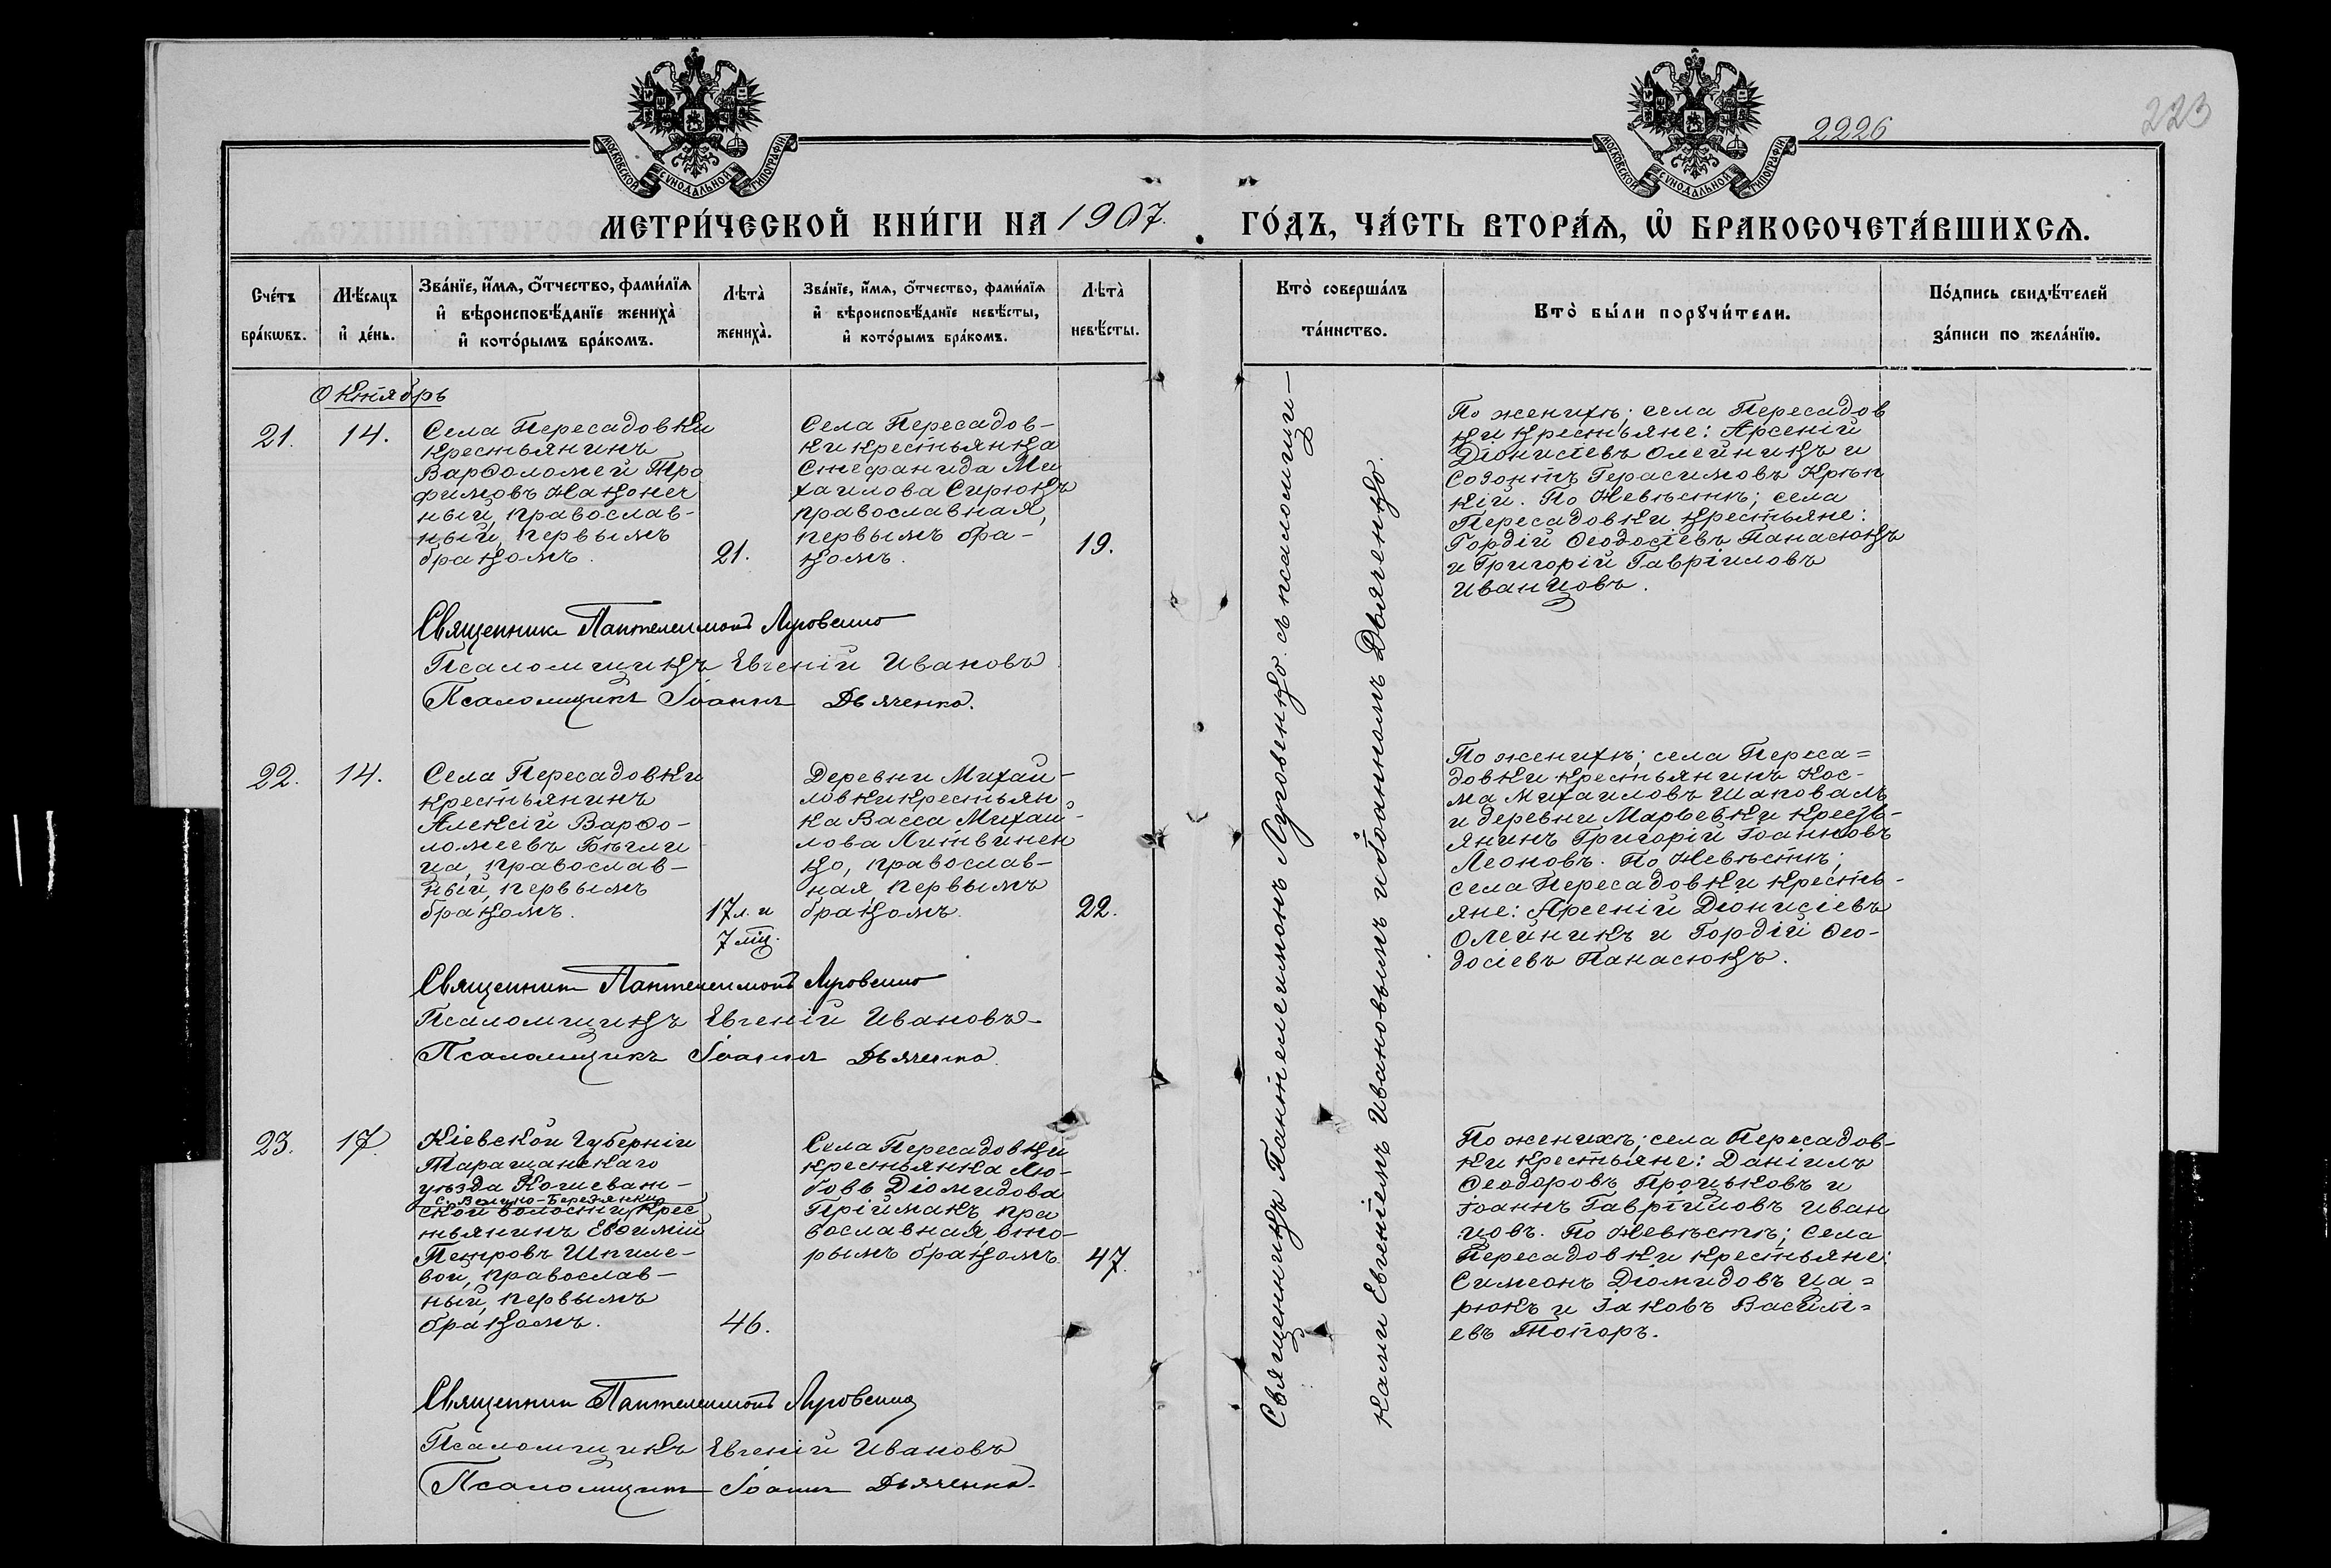 223
2226
МОСКОВСКОЙ СѴНОДАЛЬНОЙ ТИПОГРАФІИ
МОСКОВСКОЙ СѴНОДАЛЬНОЙ ТИПОГРАФІИ
МЕТРИ́ЧЕСКОЙ КНИ́ГИ НА 1907. ГО́ДЪ, ЧА́СТЬ ВТОРА́Ѧ, Ѽ БРАКОСОЧЕТА́ВШИХСѦ.
Сче́тъ
бра́кѡвъ.
Мѣ́сяцъ
и҆ де́нь.
Зва́нїе, и҆́мѧ, ѻ҆́тчество, фами́лїѧ
и҆ вѣроисповѣ́данїе жениха̀
и҆ кото́рымъ бра́комъ.
Лѣта̀
жениха̀.
Зва́нїе, и҆́мѧ, ѻ҆́тчество, фами́лїѧ
и҆ вѣроисповѣ́данїе невѣ́сты,
и҆ кото́рымъ бра́комъ.
Лѣта̀
невѣ́сты.
Кто̀ соверша́лъ
та́инство.
Кто̀ бы́ли порꙋчи́тели.
По́дпись свидѣ́телей
за́писи по жела́нїю.
Октябрь
21.
14.
Села Пересадовки
крестьянинъ
Варѳоломей Тро
фимовъ Наконеч
ный, православ-
ный, первымъ
бракомъ.
21.
Села Пересадов-
ки крестьянка
Стефанида Ми
хаилова Сирюкъ
православная,
первымъ бра-
комъ.
19.
По женихѣ; села Пересадов
ки крестьяне: Арсеній
Діонисіевъ Олейникъ и
Созонтъ Герасимовъ Крѣп
кій. По Невѣстѣ; села
Пересадовки крестьяне:
Гордій Ѳеодосіевъ Панасюкъ
и Григорій Гавріиловъ
Иванцовъ.
Священникъ Пантелеимонъ Луговенко
Псаломщикъ Евгеній Ивановъ
Псаломщикъ Іоаннъ Дьяченко.
22.
14.
Села Пересадовки
крестьянинъ
Алексій Варѳо-
ломеевъ Бѣгли
ца, православ-
ный, первымъ
бракомъ.
17 л. и
7 мѣц.
Деревни Михай-
ловки крестьян
ка Васса Михай-
лова Литвинен
ко, православ-
ная, первымъ
бракомъ.
22.
По женихѣ; села Переса=
довки крестьянинъ Кос-
ма Михаиловъ Шаповалъ
и деревни Марьевки кресть-
янинъ Григорій Іоанновъ
Леоновъ. По Невѣстѣ;
села Пересадовки кресть-
яне: Арсеній Діонисіевъ
Олейникъ и Гордій Ѳео-
досіевъ Панасюкъ.
Священникъ Пантелеимонъ Луговенко
Псаломщикъ Евгеній Ивановъ
Псаломщикъ Іоаннъ Дьяченко.
23.
17.
Кіевской Губерніи
Таращанскаго
уѣзда Кошеват-
с. Велико-Березянки
ской волости, крес
тьянинъ Евѳимій
Петровъ Шпиле-
вой, православ-
ный, первымъ
бракомъ.
46.
Села Пересадовки
крестьянка Лю-
бовь Діомидова
Прійманъ, пра
вославная, вто-
рымъ бракомъ.
47.
По женихѣ; села Пересадов-
ки крестьяне: Даніилъ
Ѳеодоровъ Процьковъ и
Іоаннъ Гавріиловъ Иван
цовъ. По Невѣстѣ; Села
Пересадовки крестьяне:
Симеонъ Діомидовъ Ца=
рюкъ и Іаковъ Василі=
евъ Топоръ.
Священникъ Пантелеимонъ Луговенко
Псаломщикъ Евгеній Ивановъ
Псаломщикъ Іоаннъ Дьяченко.
Священникъ Пантелеимонъ Луговенко съ псаломщи-
ками Евгеніемъ Ивановымъ и Іоанномъ Дьяченко.